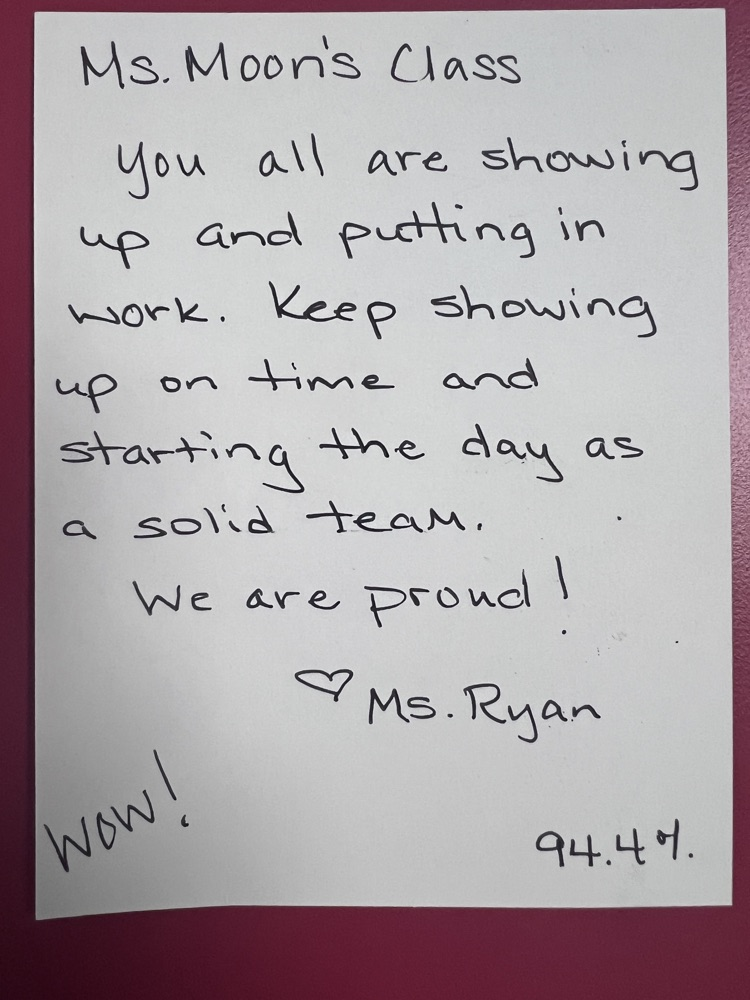 Ms. Moon's Class
You all are showing
up and putting in
work. Keep showing
up on time and
starting the day as
a solid team.
We are proud!
♡ Ms. Ryan
Wow!
94.4%.